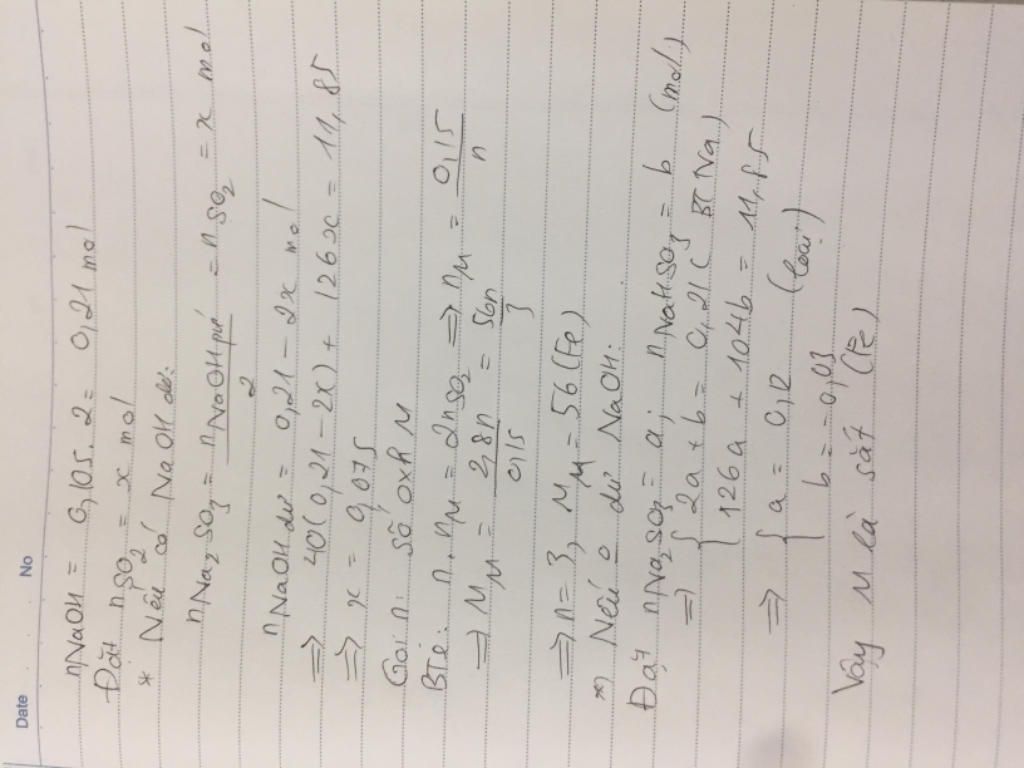 Date No
nNaOH = 0,105.2 = 0,21 mol
Đặt nSO2 = x mol
* Nếu có NaOH dư:
nNa2SO3 = nNaOH pứ / 2 = nSO2 = x mol
nNaOH dư = 0,21 - 2x mol
=> 40(0,21 - 2x) + 126x = 11,85
=> x = 0,075
Gọi n: số oxh M
BTe: n.nM = 2nSO2 => nM = 0,15/n
=> MM = 2,8n/0,15 = 56n/3
=> n = 3, MM = 56 (Fe)
*) Nếu o dư NaOH:
Đặt nNa2SO3 = a; nNaHSO3 = b (mol)
=> { 2a + b = 0,21 (BT Na)
126a + 104b = 11,85
=> { a = 0,12 (loại)
b = -0,03
Vậy M là sắt (Fe)